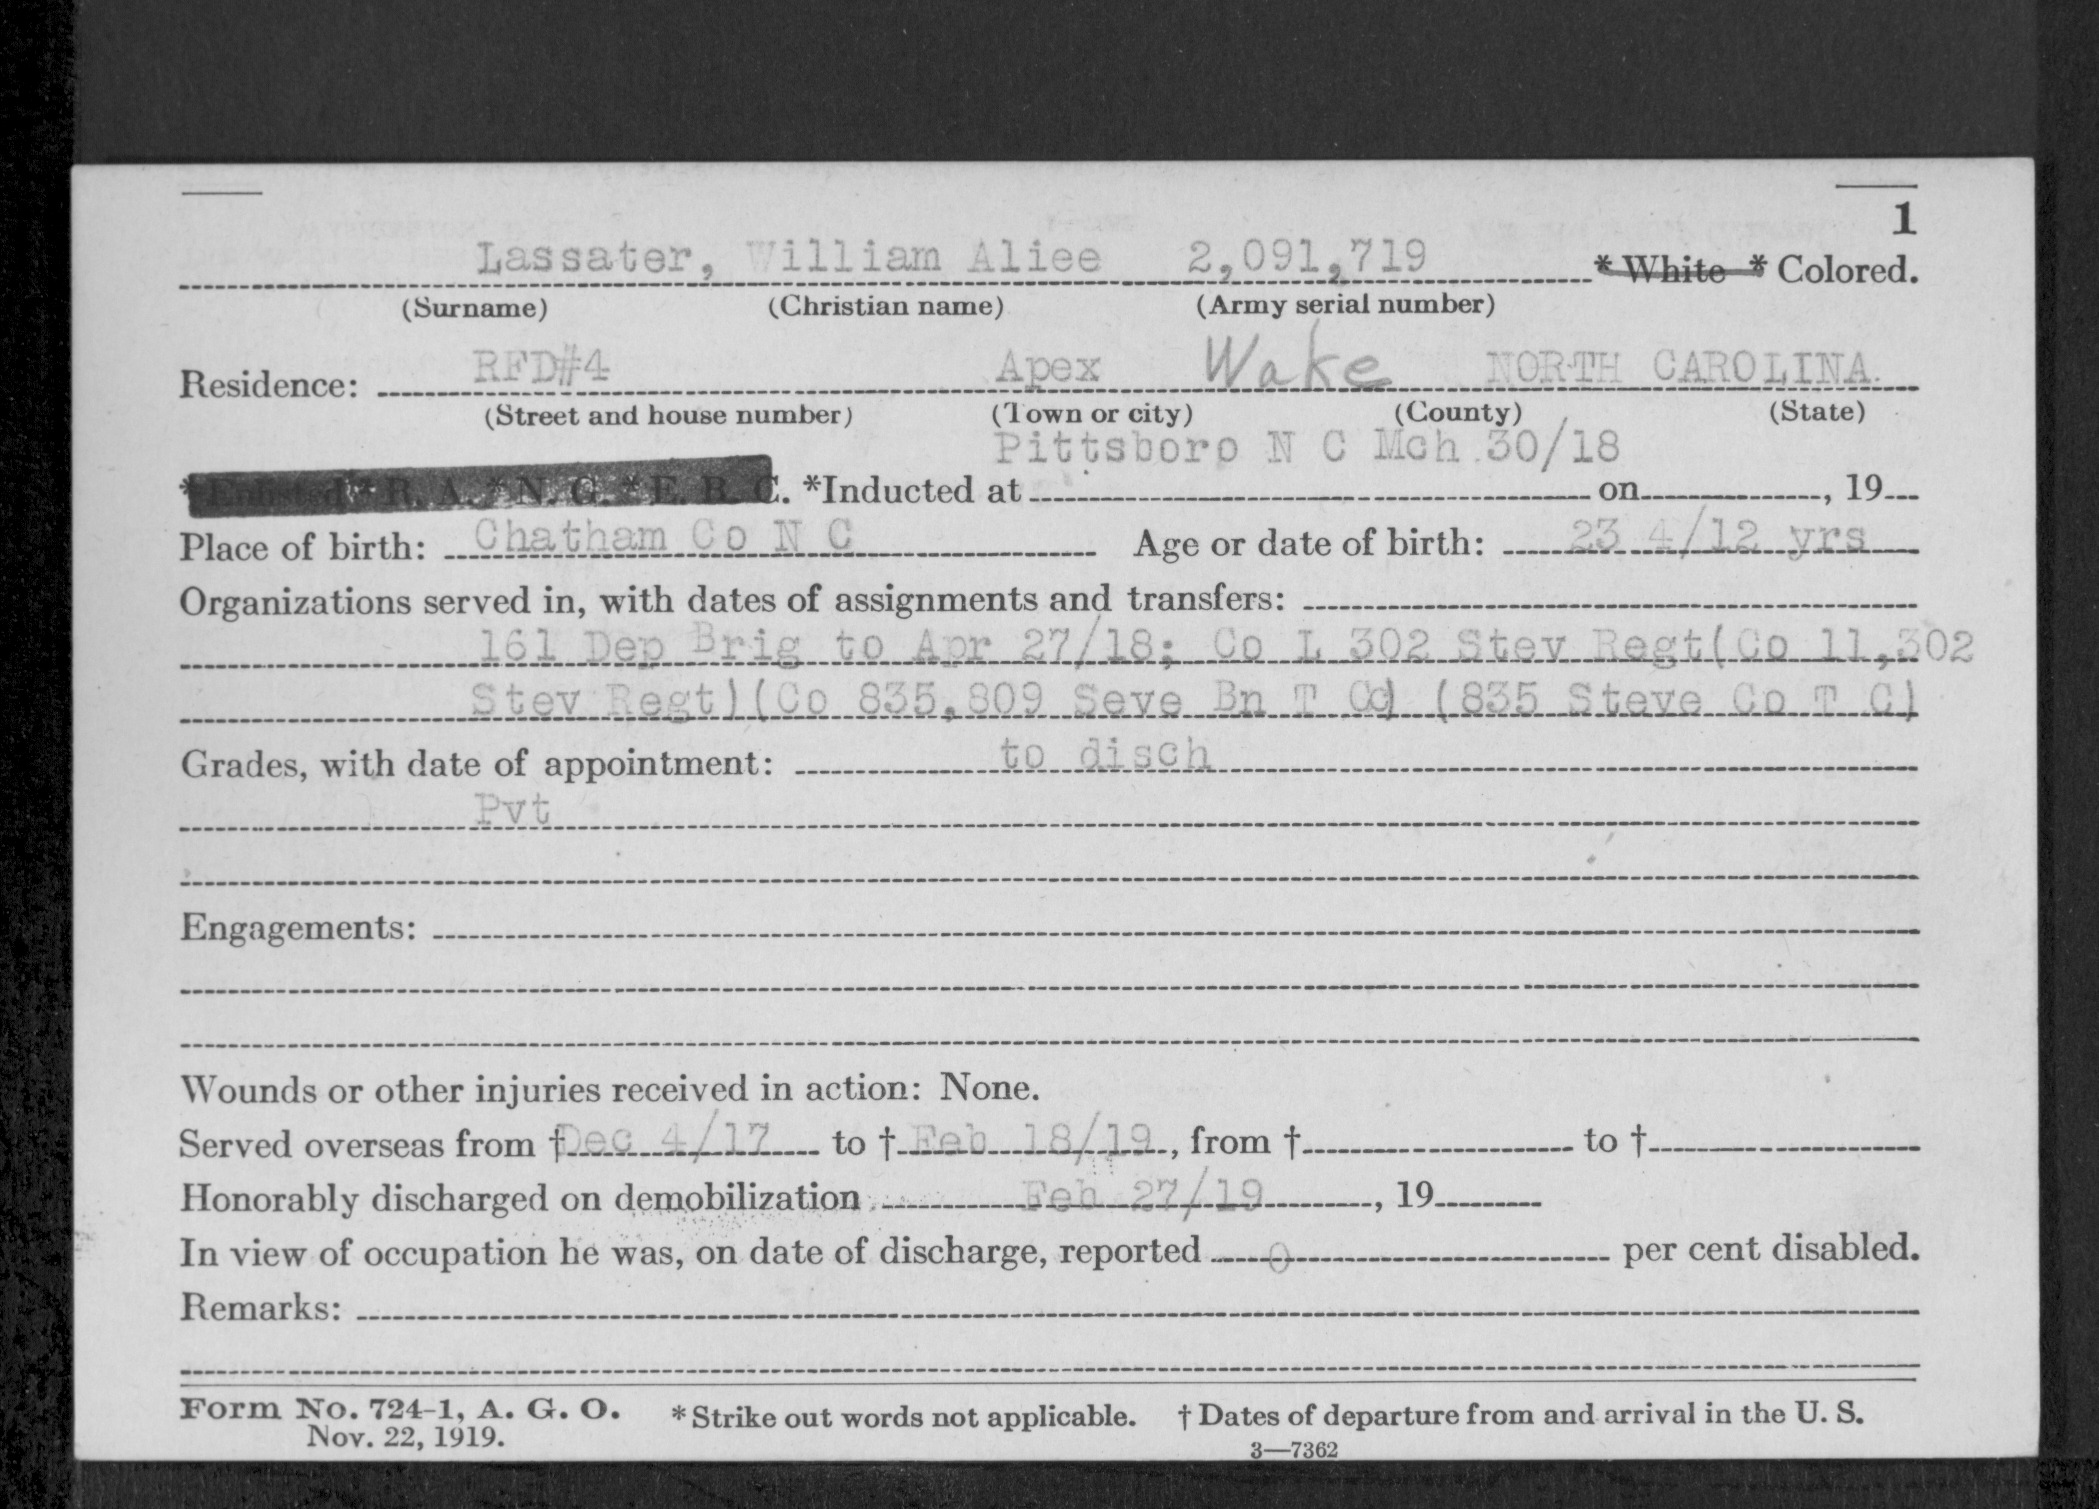 1
Lassater, William Aliee 2,091,719 * White * Colored.
(Surname) (Christian name) (Army serial number)
Residence: RFD#4 Apex Wake NORTH CAROLINA.
(Street and house number) (Town or city) (County) (State)
Pittsboro N C Mch 30/18
*Enlisted * R. A. * N. G. * E. R. C. *Inducted at on , 19
Place of birth: Chatham Co N C Age or date of birth: 23 4/12 yrs
Organizations served in, with dates of assignments and transfers:
161 Dep Brig to Apr 27/18; Co L 302 Stev Regt(Co 11,302
Stev Regt)(Co 835,809 Seve Bn T C) (835 Steve Co T C)
Grades, with date of appointment: to disch
Pvt
Engagements:
Wounds or other injuries received in action: None.
Served overseas from † Dec 4/17 to † Feb 18/19, from † to †
Honorably discharged on demobilization Feb 27/19, 19
In view of occupation he was, on date of discharge, reported 0 per cent disabled.
Remarks:
Form No. 724-1, A. G. O. *Strike out words not applicable. † Dates of departure from and arrival in the U. S.
Nov. 22, 1919. 3—7362